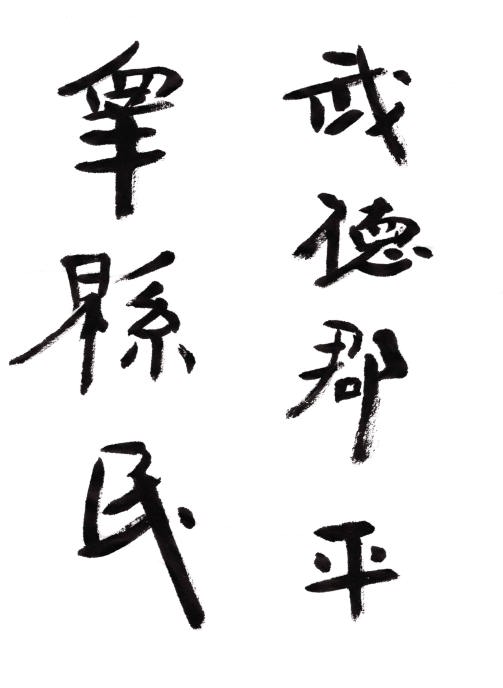 武德郡平
睾縣民